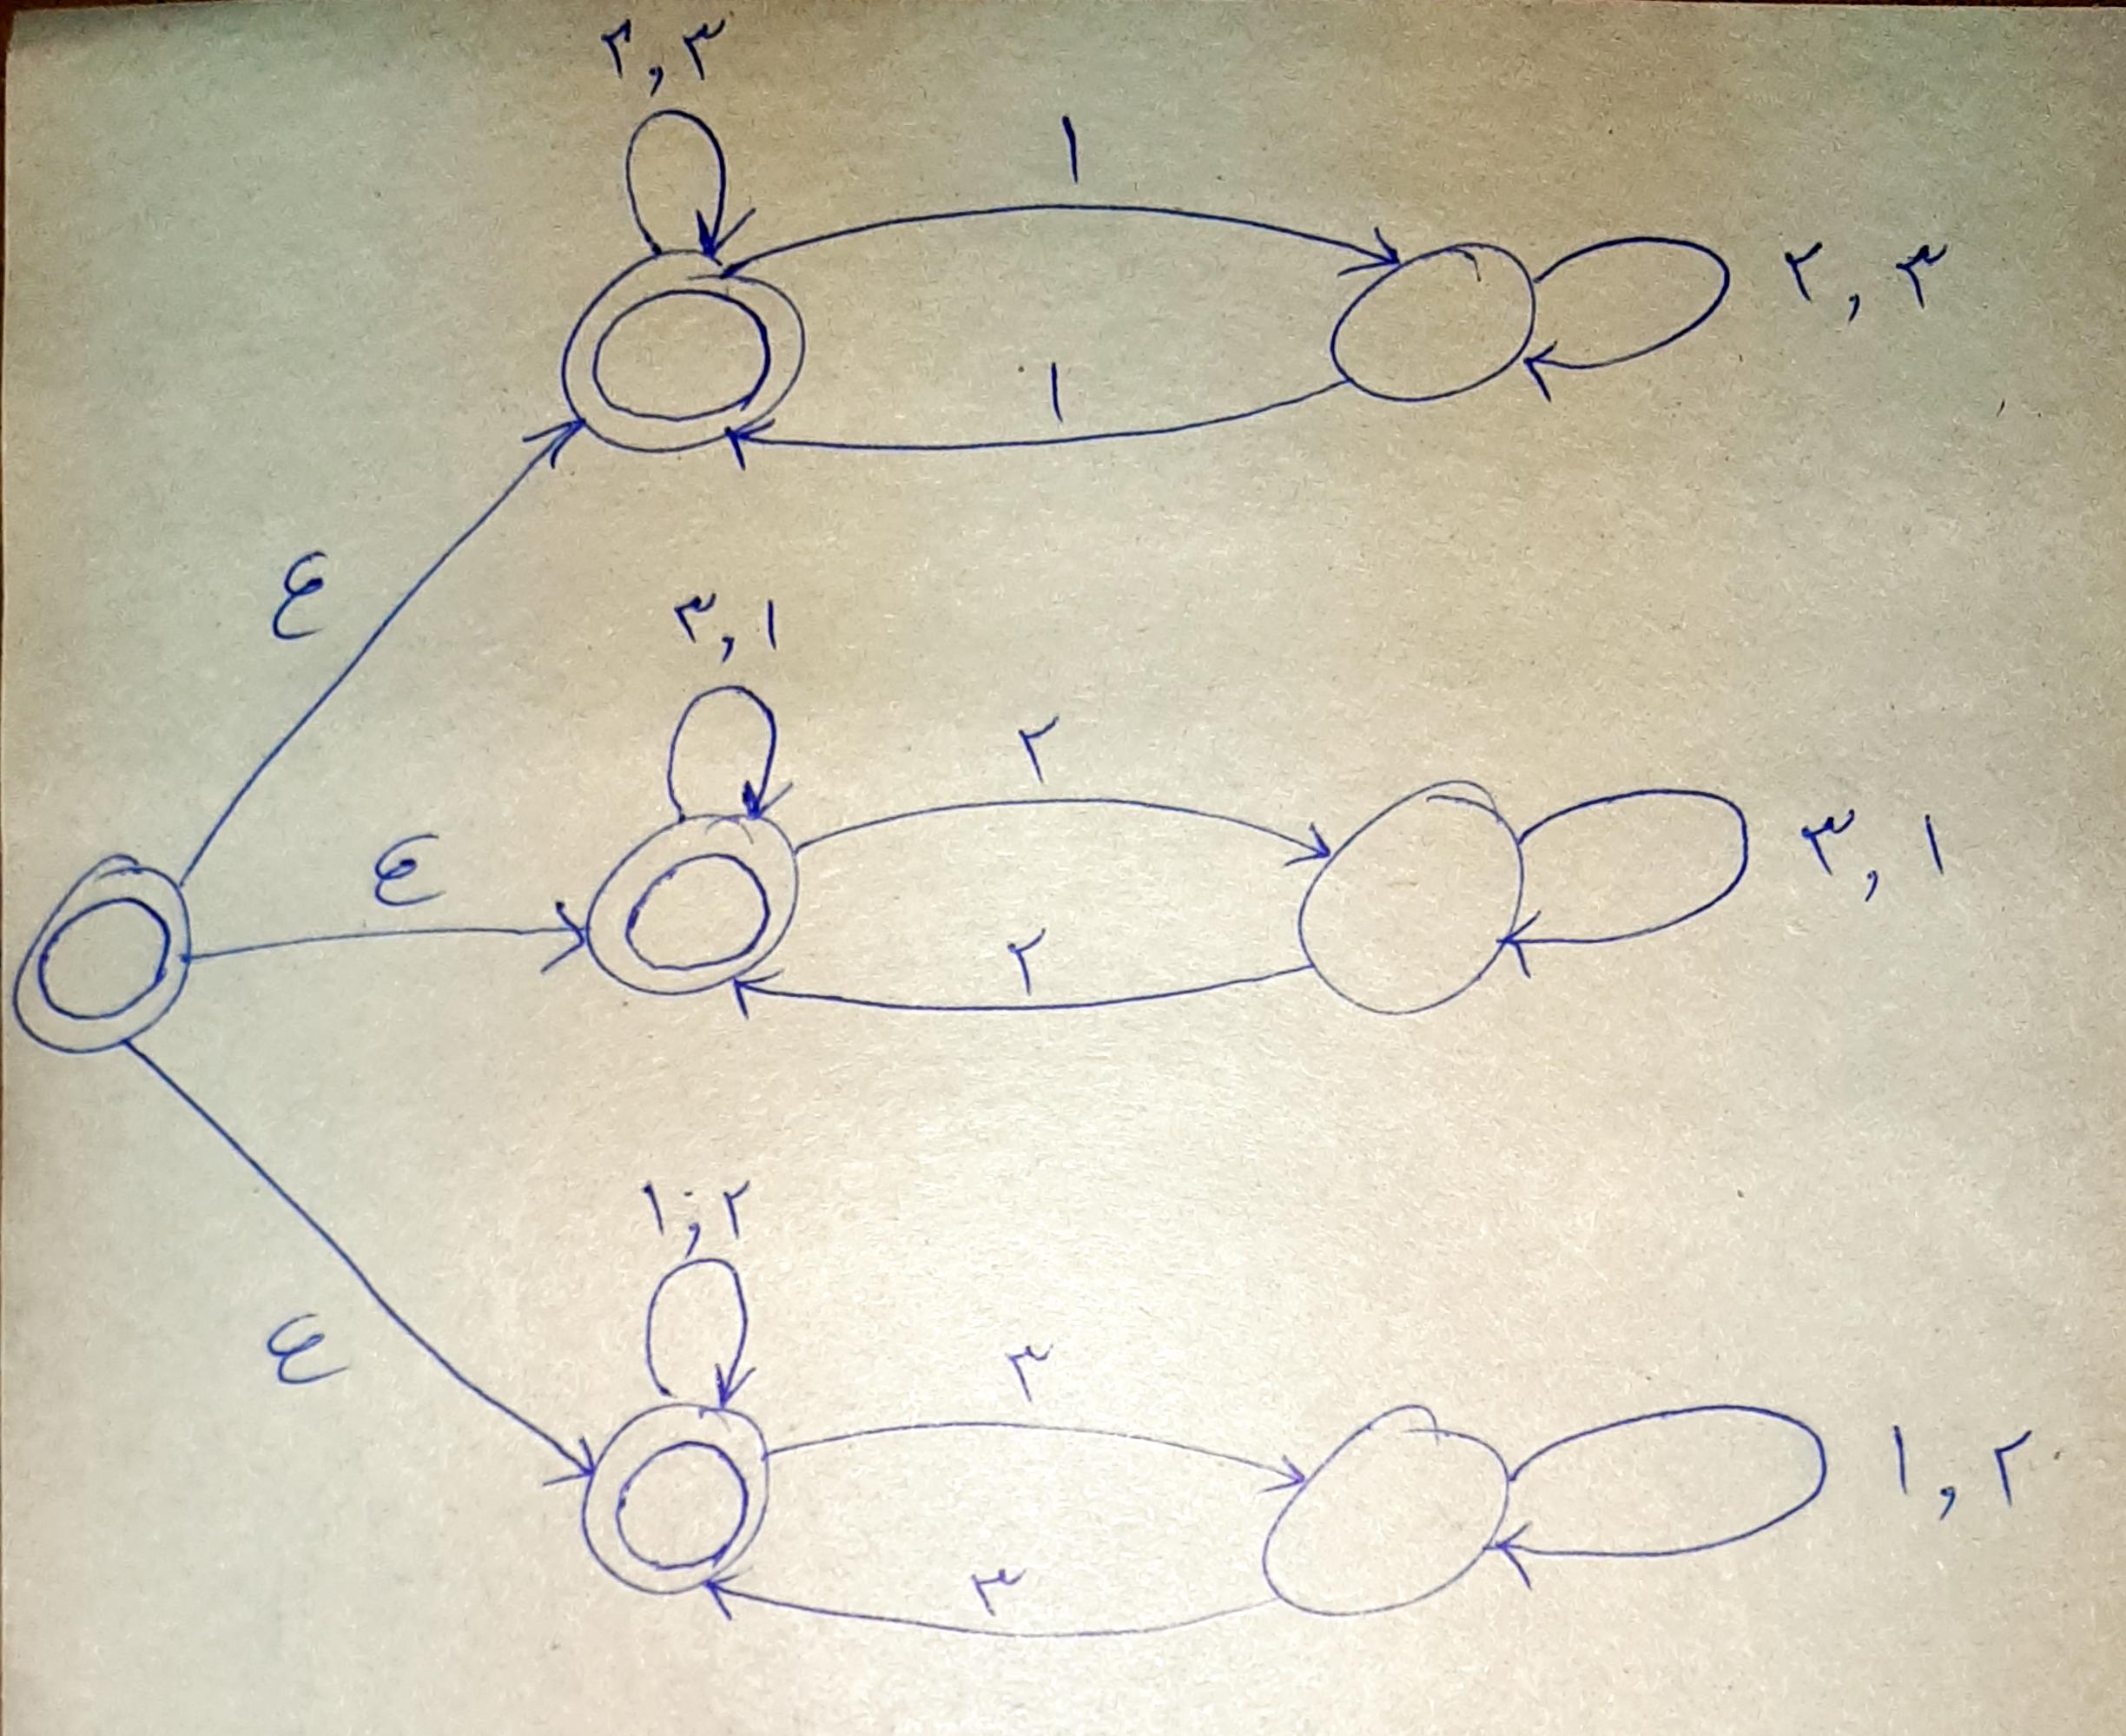 ۲, ۳
۱
۲, ۳
۱
ε
۳, ۱
۲
۳, ۱
ε
۲
۱, ۲
۳
ε
۱, ۲
۳